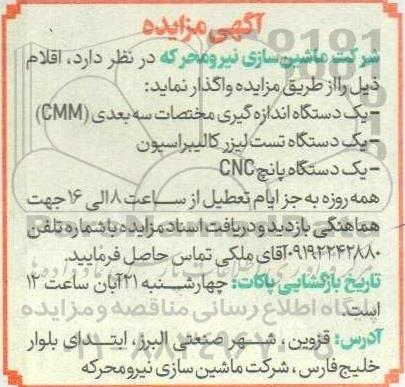 آگهی مزایده
شرکت ماشین‌سازی نیرومحرکه در نظر دارد، اقلام
ذیل را از طریق مزایده واگذار نماید:
- یک دستگاه اندازه گیری مختصات سه بعدی (CMM)
- یک دستگاه تست لیزر کالیبراسیون
- یک دستگاه پانچ CNC
همه روزه به جز ایام تعطیل از ساعت ۸ الی ۱۶ جهت
هماهنگی بازدید و دریافت اسناد مزایده با شماره تلفن
۰۹۱۹۲۲۴۲۸۸۰ آقای ملکی تماس حاصل فرمایید.
تاریخ بازگشایی پاکات: چهارشنبه ۲۱ آبان ساعت ۱۲
است.
پایگاه اطلاع رسانی مناقصه و مزایده
آدرس: قزوین، شهر صنعتی البرز، ابتدای بلوار
خلیج فارس، شرکت ماشین سازی نیرومحرکه